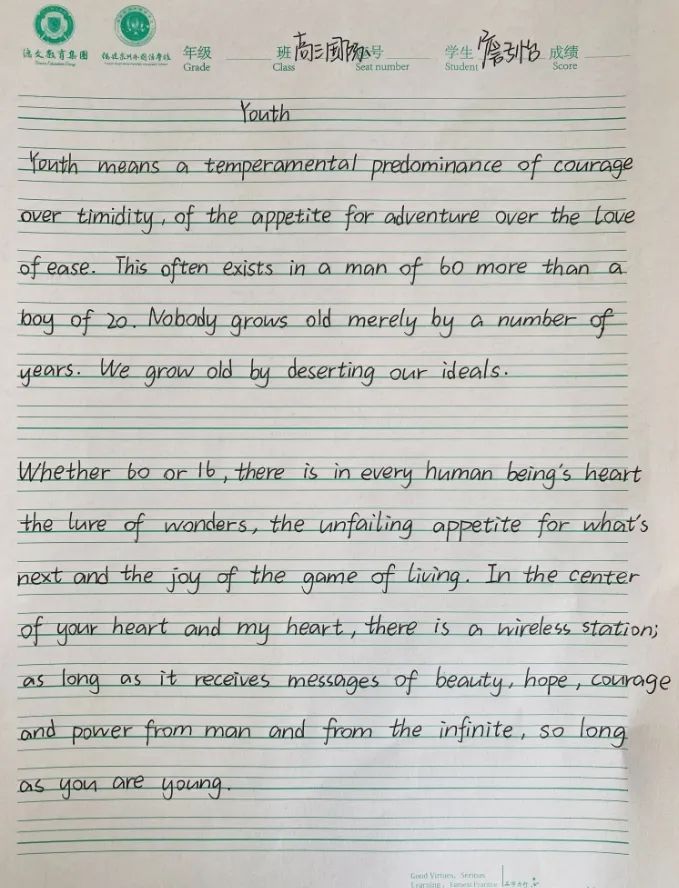 海文教育集团
年级 班 高三国际 号 学生 成绩
Grade Class Seat number Student Score
Youth
Youth means a temperamental predominance of courage
over timidity, of the appetite for adventure over the love
of ease. This often exists in a man of 60 more than a
boy of 20. Nobody grows old merely by a number of
years. We grow old by deserting our ideals.
Whether 60 or 16, there is in every human being's heart
the lure of wonders, the unfailing appetite for what's
next and the joy of the game of living. In the center
of your heart and my heart, there is a wireless station;
as long as it receives messages of beauty, hope, courage
and power from man and from the infinite, so long
as you are young.
Good Virtues, Serious
Learning, Earnest Practice